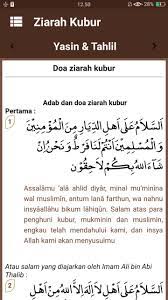 12.50
Ziarah Kubur
Yasin & Tahlil
Doa ziarah kubur
Adab dan doa ziarah kubur
Pertama :
1
اَلسَّلَامُ عَلَى اَهْلِ الدِّيَارِ مِنَ الْمُؤْمِنِيْنَ
وَالْمُسْلِمِيْنَ اَنْتُمْ لَنَا فَرَطٌ وَنَحْنُ اِنْ
شَآءَ اللهُ بِكُمْ لَاحِقُوْنَ
Assalâmu 'alâ ahlid diyâr, minal mu'minîna
wal muslimîn, antum lanâ farthun, wa nahnu
insyâallâhu bikum lâhiqûn. Salam atas para
penghuni kubur, mukminin dan muslimin,
engkau telah mendahului kami, dan insya
Allah kami akan menyusulmu
Atau salam yang diajarkan oleh Imam Ali bin Abi
Thalib :
1